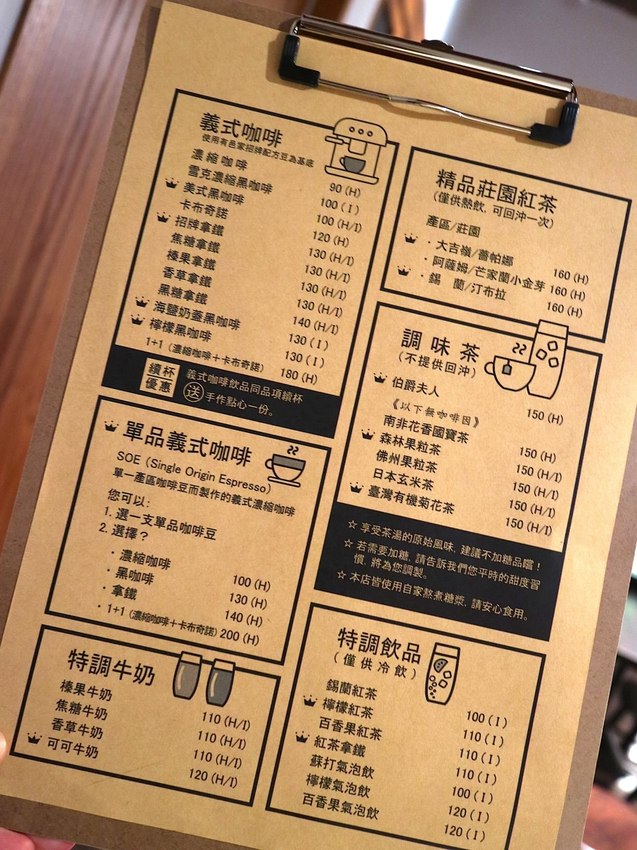 義式咖啡
使用有邑家招牌配方豆為基底
濃縮咖啡 90 (H)
雪克濃縮黑咖啡 100 (I)
美式黑咖啡 100 (H/I)
卡布奇諾 120 (H)
招牌拿鐵 130 (H/I)
焦糖拿鐵 130 (H/I)
榛果拿鐵 130 (H/I)
香草拿鐵 130 (H/I)
黑糖拿鐵 140 (H/I)
海鹽奶蓋黑咖啡 130 (I)
檸檬黑咖啡 130 (I)
1+1 (濃縮咖啡+卡布奇諾) 180 (H)
續杯優惠
義式咖啡飲品同品項續杯
送 手作點心一份。
單品義式咖啡
SOE (Single Origin Espresso)
單一產區咖啡豆而製作的義式濃縮咖啡
您可以:
1. 選一支單品咖啡豆
2. 選擇?
· 濃縮咖啡 100 (H)
· 黑咖啡 130 (H)
· 拿鐵 140 (H)
· 1+1 (濃縮咖啡+卡布奇諾) 200 (H)
特調牛奶
榛果牛奶 110 (H/I)
焦糖牛奶 110 (H/I)
香草牛奶 110 (H/I)
可可牛奶 120 (H/I)
精品莊園紅茶
(僅供熱飲, 可回沖一次)
產區/莊園
· 大吉嶺/蕾帕娜 160 (H)
· 阿薩姆/芒家蘭小金芽 160 (H)
· 錫 蘭/汀布拉 160 (H)
調味茶
(不提供回沖)
伯爵夫人 150 (H)
《以下無咖啡因》
南非花香國寶茶 150 (H)
森林果粒茶 150 (H/I)
佛州果粒茶 150 (H/I)
日本玄米茶 150 (H/I)
臺灣有機菊花茶 150 (H/I)
☆ 享受茶湯的原始風味, 建議不加糖品嚐!
☆ 若需要加糖, 請告訴我們您平時的甜度習
慣, 將為您調製。
☆ 本店皆使用自家熬煮糖漿, 請安心食用。
特調飲品
(僅供冷飲)
錫蘭紅茶 100 (I)
檸檬紅茶 110 (I)
百香果紅茶 110 (I)
紅茶拿鐵 110 (I)
蘇打氣泡飲 100 (I)
檸檬氣泡飲 120 (I)
百香果氣泡飲 120 (I)